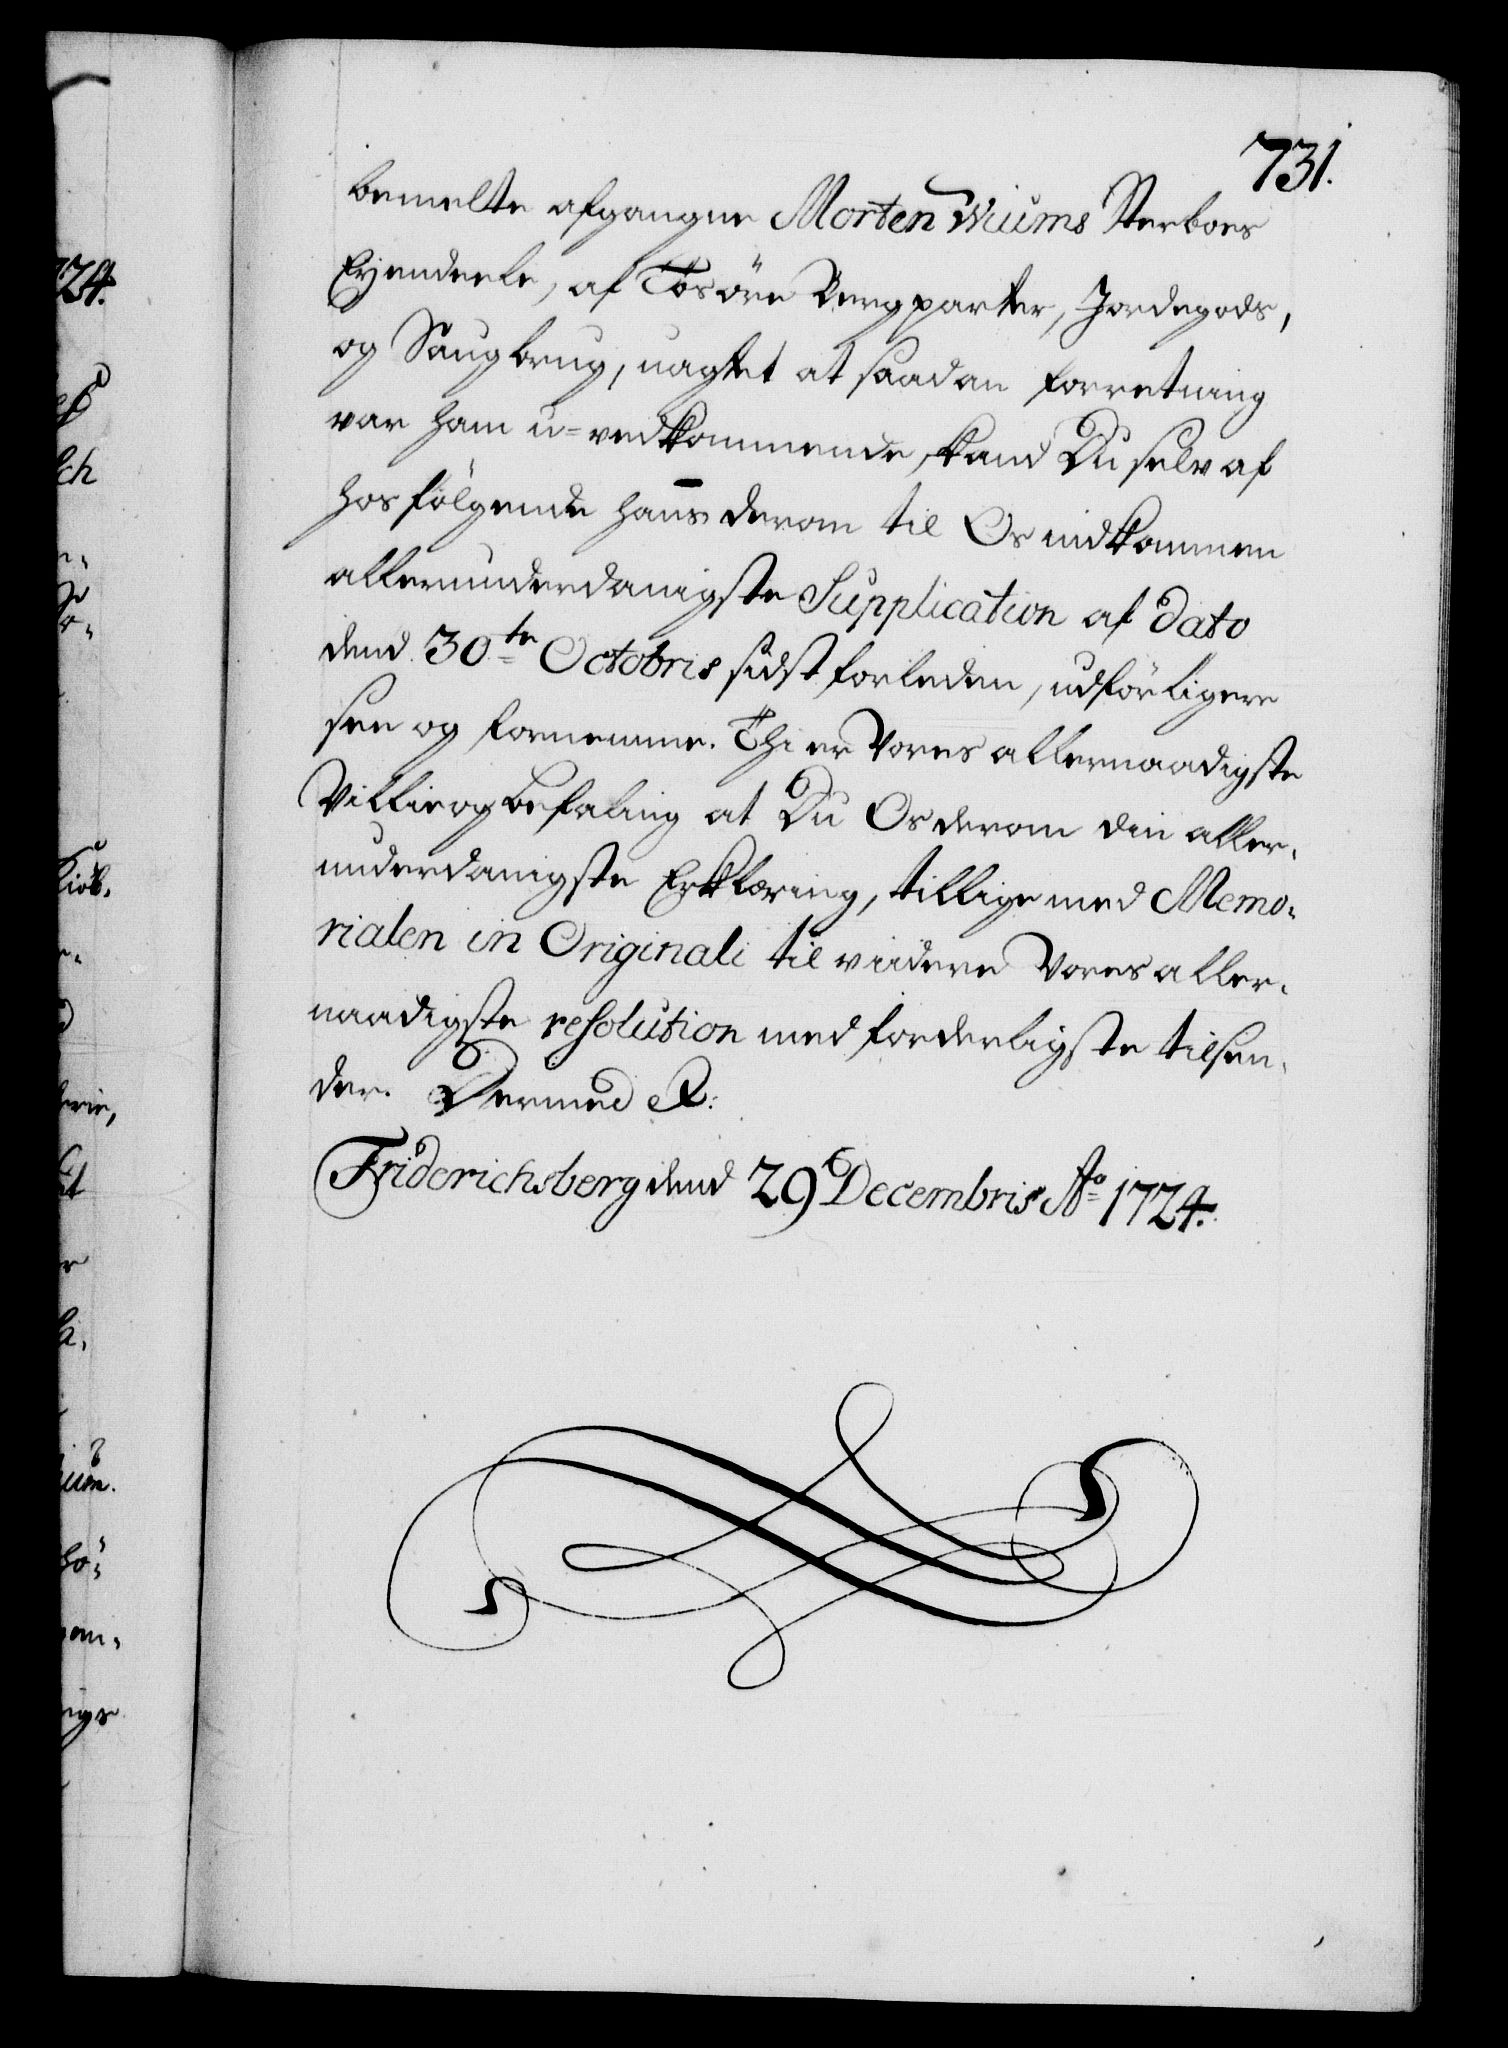 731.
bemelte afgangne Morten Wiums Sterboes
Eyendeele, af Løsöre Bergparter, Jordegods,
og Saugbrug, uagtet at saadan forretning
var ham u=vedkommende, kand Du selv af
hos følgende hans derom til Os indkommen
allerunderdanigste Supplication af dato
dend 30te Octobris sidst forleden, udförligere
see og fornemme. Thi er Vores allernaadigste
Villie og befaling at Du Os derom din aller-
underdanigste Erklæring, tillige med Memo-
rialen in Originali til viidere Vores aller-
naadigste resolution med forderligste tilsen-
der. Dermed &:
Friderichsberg dend 29 Decembris Ao 1724.
724.